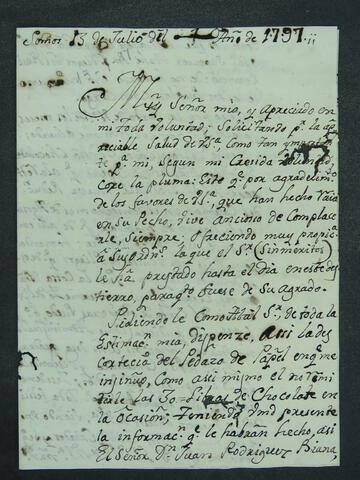 Somos 13 de Julio del Año de 1797.,,
Muy Señor mio, y Apreciado en
mi toda Voluntad; Solicitando pr. la a
preciable Salud de Vsa, Como tan ymportante
pa. mi, Segun mi Crecida Voluntad,
Cojo la pluma: Esto qe. por agradecimto.
de los favores de Vsa, que han hecho Vaia
en Su Pecho, Vive Ancioso de Complacer
le, Siempre, ofreciendo muy propicia
a Su la que el Sr. (Sin meritos)
le Ha prestado hasta el dia en este des
tierro, para qe. fuese de Su agrado.
Pidiendo le Como tal Sr. de toda la
Estimacn. mia, dispenze, Asi la des
cortecia del Pedazo de Papel en qe. me
injinio, Como asi mismo el no remi
tiale las 50 Libras de Chocolate en
la Ocasion; Teniendo Vmd presente
la informacn. qe. le habran hecho, asi
El Señor Dn. Juan Rodriguez Biana,